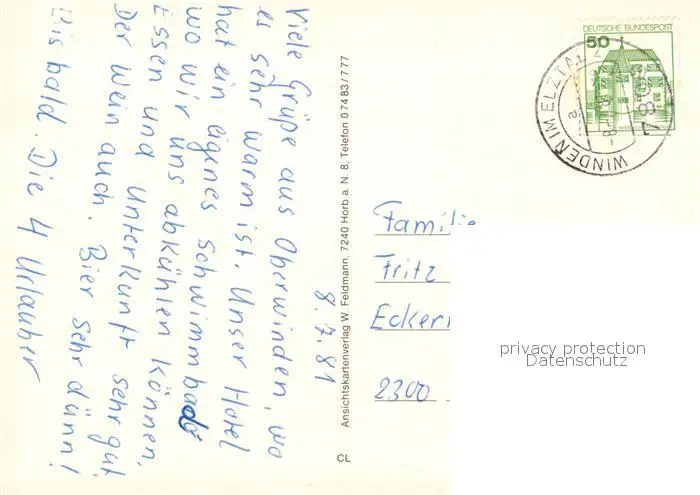 8.7.81
Viele Grüße aus Oberwinden, wo
es sehr warm ist. Unser Hotel
hat ein eigenes Schwimmbad
wo wir uns abkühlen können,
Essen und Unterkunft sehr gut
Der Wein auch. Bier sehr dünn!
Bis bald. Die 4 Urlauber
CL
Ansichtskartenverlag W. Feldmann, 7240 Horb a. N. 8, Telefon 0 74 83 / 7 77
DEUTSCHE BUNDESPOST
50
WINDEN IM ELZTAL
Familie
Fritz
2300
privacy protection
Datenschutz